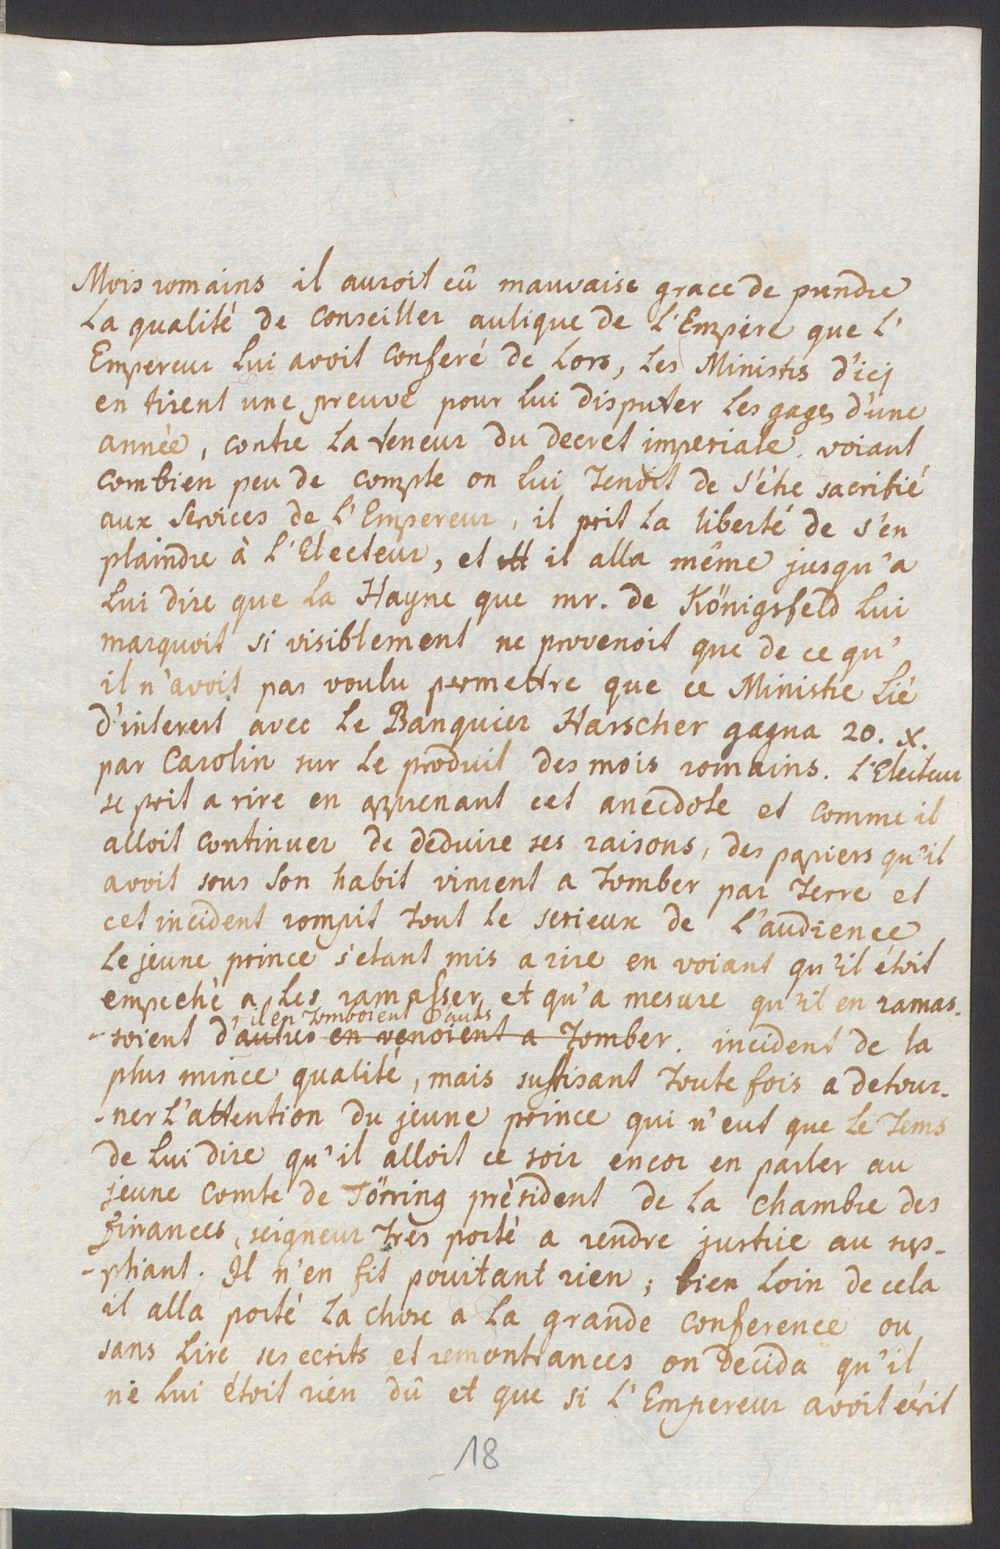 Mois romains il auroit eû mauvaise grace de prendre
la qualité de Conseiller aulique de l'Empire que l'
Empereur lui avoit conferé de lors, les Ministrs d'icj
en tirent une preuve pour lui disputer les gages d'une
année, contre la teneur du decret imperiale. voiant
combien peu de compte on lui tenoit de s'étre sacrifié
aux services de l'Empereur, il prit la liberté de s'en
plaindre à l'Electeur, et il alla même jusqu'a
lui dire que la Hayne que mr. de Königsfeld lui
marquoit si visiblement ne provenoit que de ce qu'
il n'avoit pas voulu permettre que ce Ministre lié
d'interest avec le Banquier Harscher gagna 20. x.
par Carolin sur le produit des mois romains. l'Electeur
se prit a rire en apprenant cet anecdote et comme il
alloit continuer de deduire ses raisons, des papiers qu'il
avoit sous son habit vinrent a tomber par terre et
cet incident rompit tout le serieux de l'audience
le jeune prince s'étant mis a rire en voiant qu'il étoit
empeché a les ramasser et qu'a mesure qu'il en ramas-
il en tomboient d'auts
-soient d'autres en venoient a tomber. incident de la
plus mince qualité, mais suffisant toute fois a detour-
-ner l'attention du jeune prince qui n'eut que le tems
de lui dire qu'il alloit ce soir encor en parler au
jeune Comte de Törring président de la chambre des
finances, seigneur très porté a rendre justice au sup-
-pliant. Il n'en fit pourtant rien; bien loin de cela
il alla porté la chose a la grande conference ou
sans lire ses ecrits et remontrances on decida qu'il
ne lui étoit rien dû et que si l'Empereur avoit écrit
18